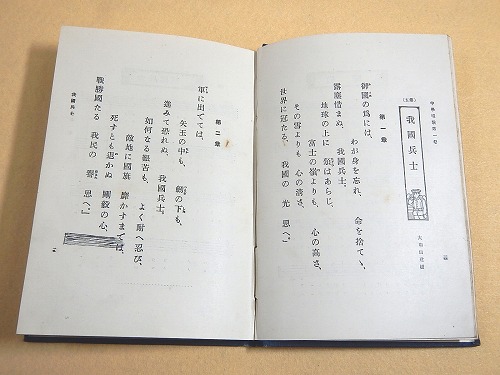 中學唱歌第一卷
我國兵士
第一章
御國の爲には、
わが身を忘れ、 命を捨てゝ、
露塵惜まぬ、 我國兵士、
地球の上に 類はあらじ、
富士の嶺よりも、 心の高さ、
その雪よりも 心の潔さ、
世界に冠たる、 我國の 光 思へ。
第二章
軍に出でては、
矢玉の中も、 劒の下も、
進みて恐れぬ、 我國兵士、
如何なる艱苦も、 よく耐へ忍び、
敵地に國旗 靡かすまでは、
死すとも退かぬ 剛毅の心、
戰勝國たる 我民の 譽 思へ。
我國兵士